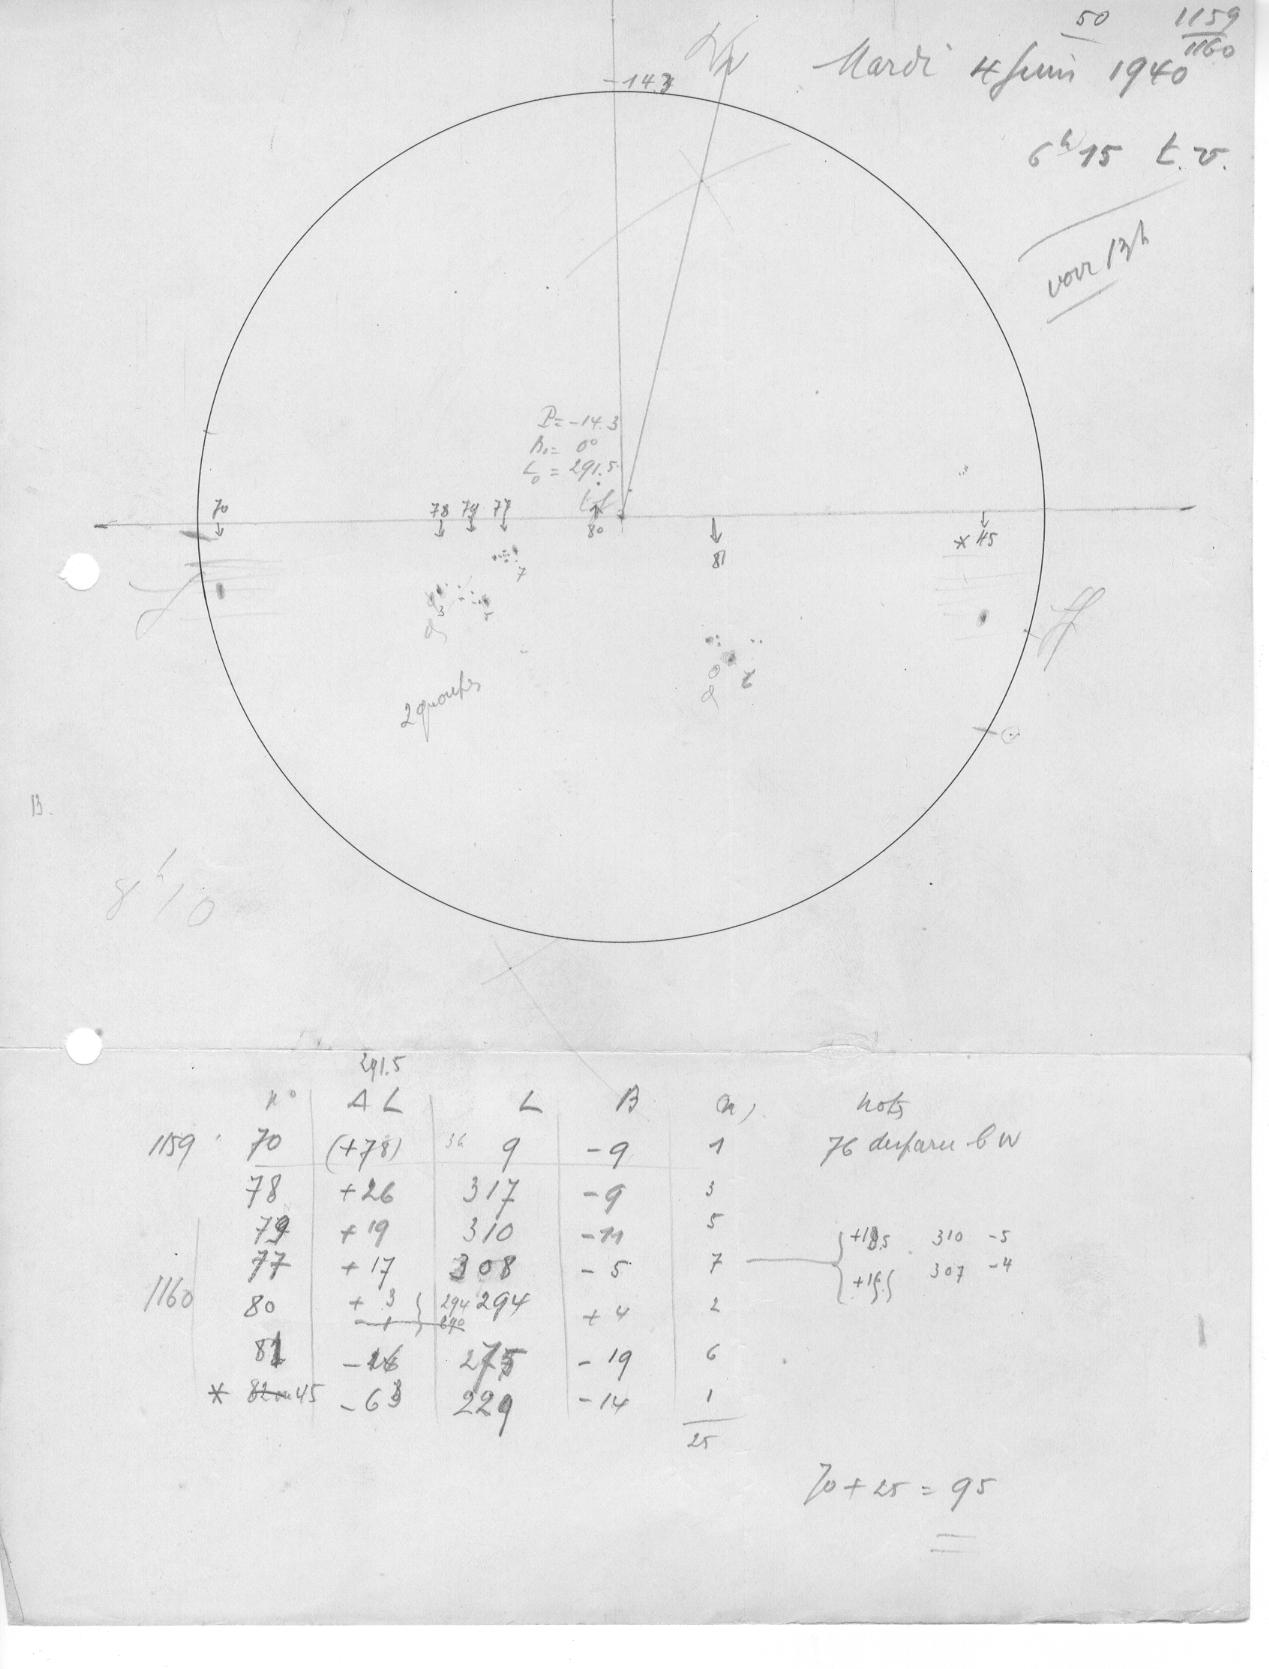 50 1159
1160
Mardi 4 Juin 1940
-14.3
6h15 t.v.
voir 13h
P = -14.3
B₀ = 0°
L₀ = 291.5
70 78 79 77
80
81
* 45
7
3
5
6
2 groupes
B.
8h10
291.5
n° Δ L L B n) Notes
1159 70 (+78) 9 -9 1 76 disparu b W
78 +26 317 -9 3
79 +19 310 -11 5 310 -5
77 +17 308 -5 7 307 -4
1160 80 + 3 294 294 +4 2
81 -16 275 -19 6
* 82 ou 45 -63 229 -14 1
25
70 + 25 = 95